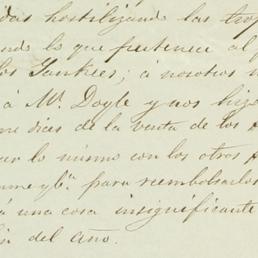 das hostilizando las trop
ndo lo que pertenece al
los Yankees; á nosotros
á Mr. Doyle y nos hizo
me dices de la venta de los
ar lo mismo con los otros
para reembolsarlos
á una cosa insignificante
in del año.